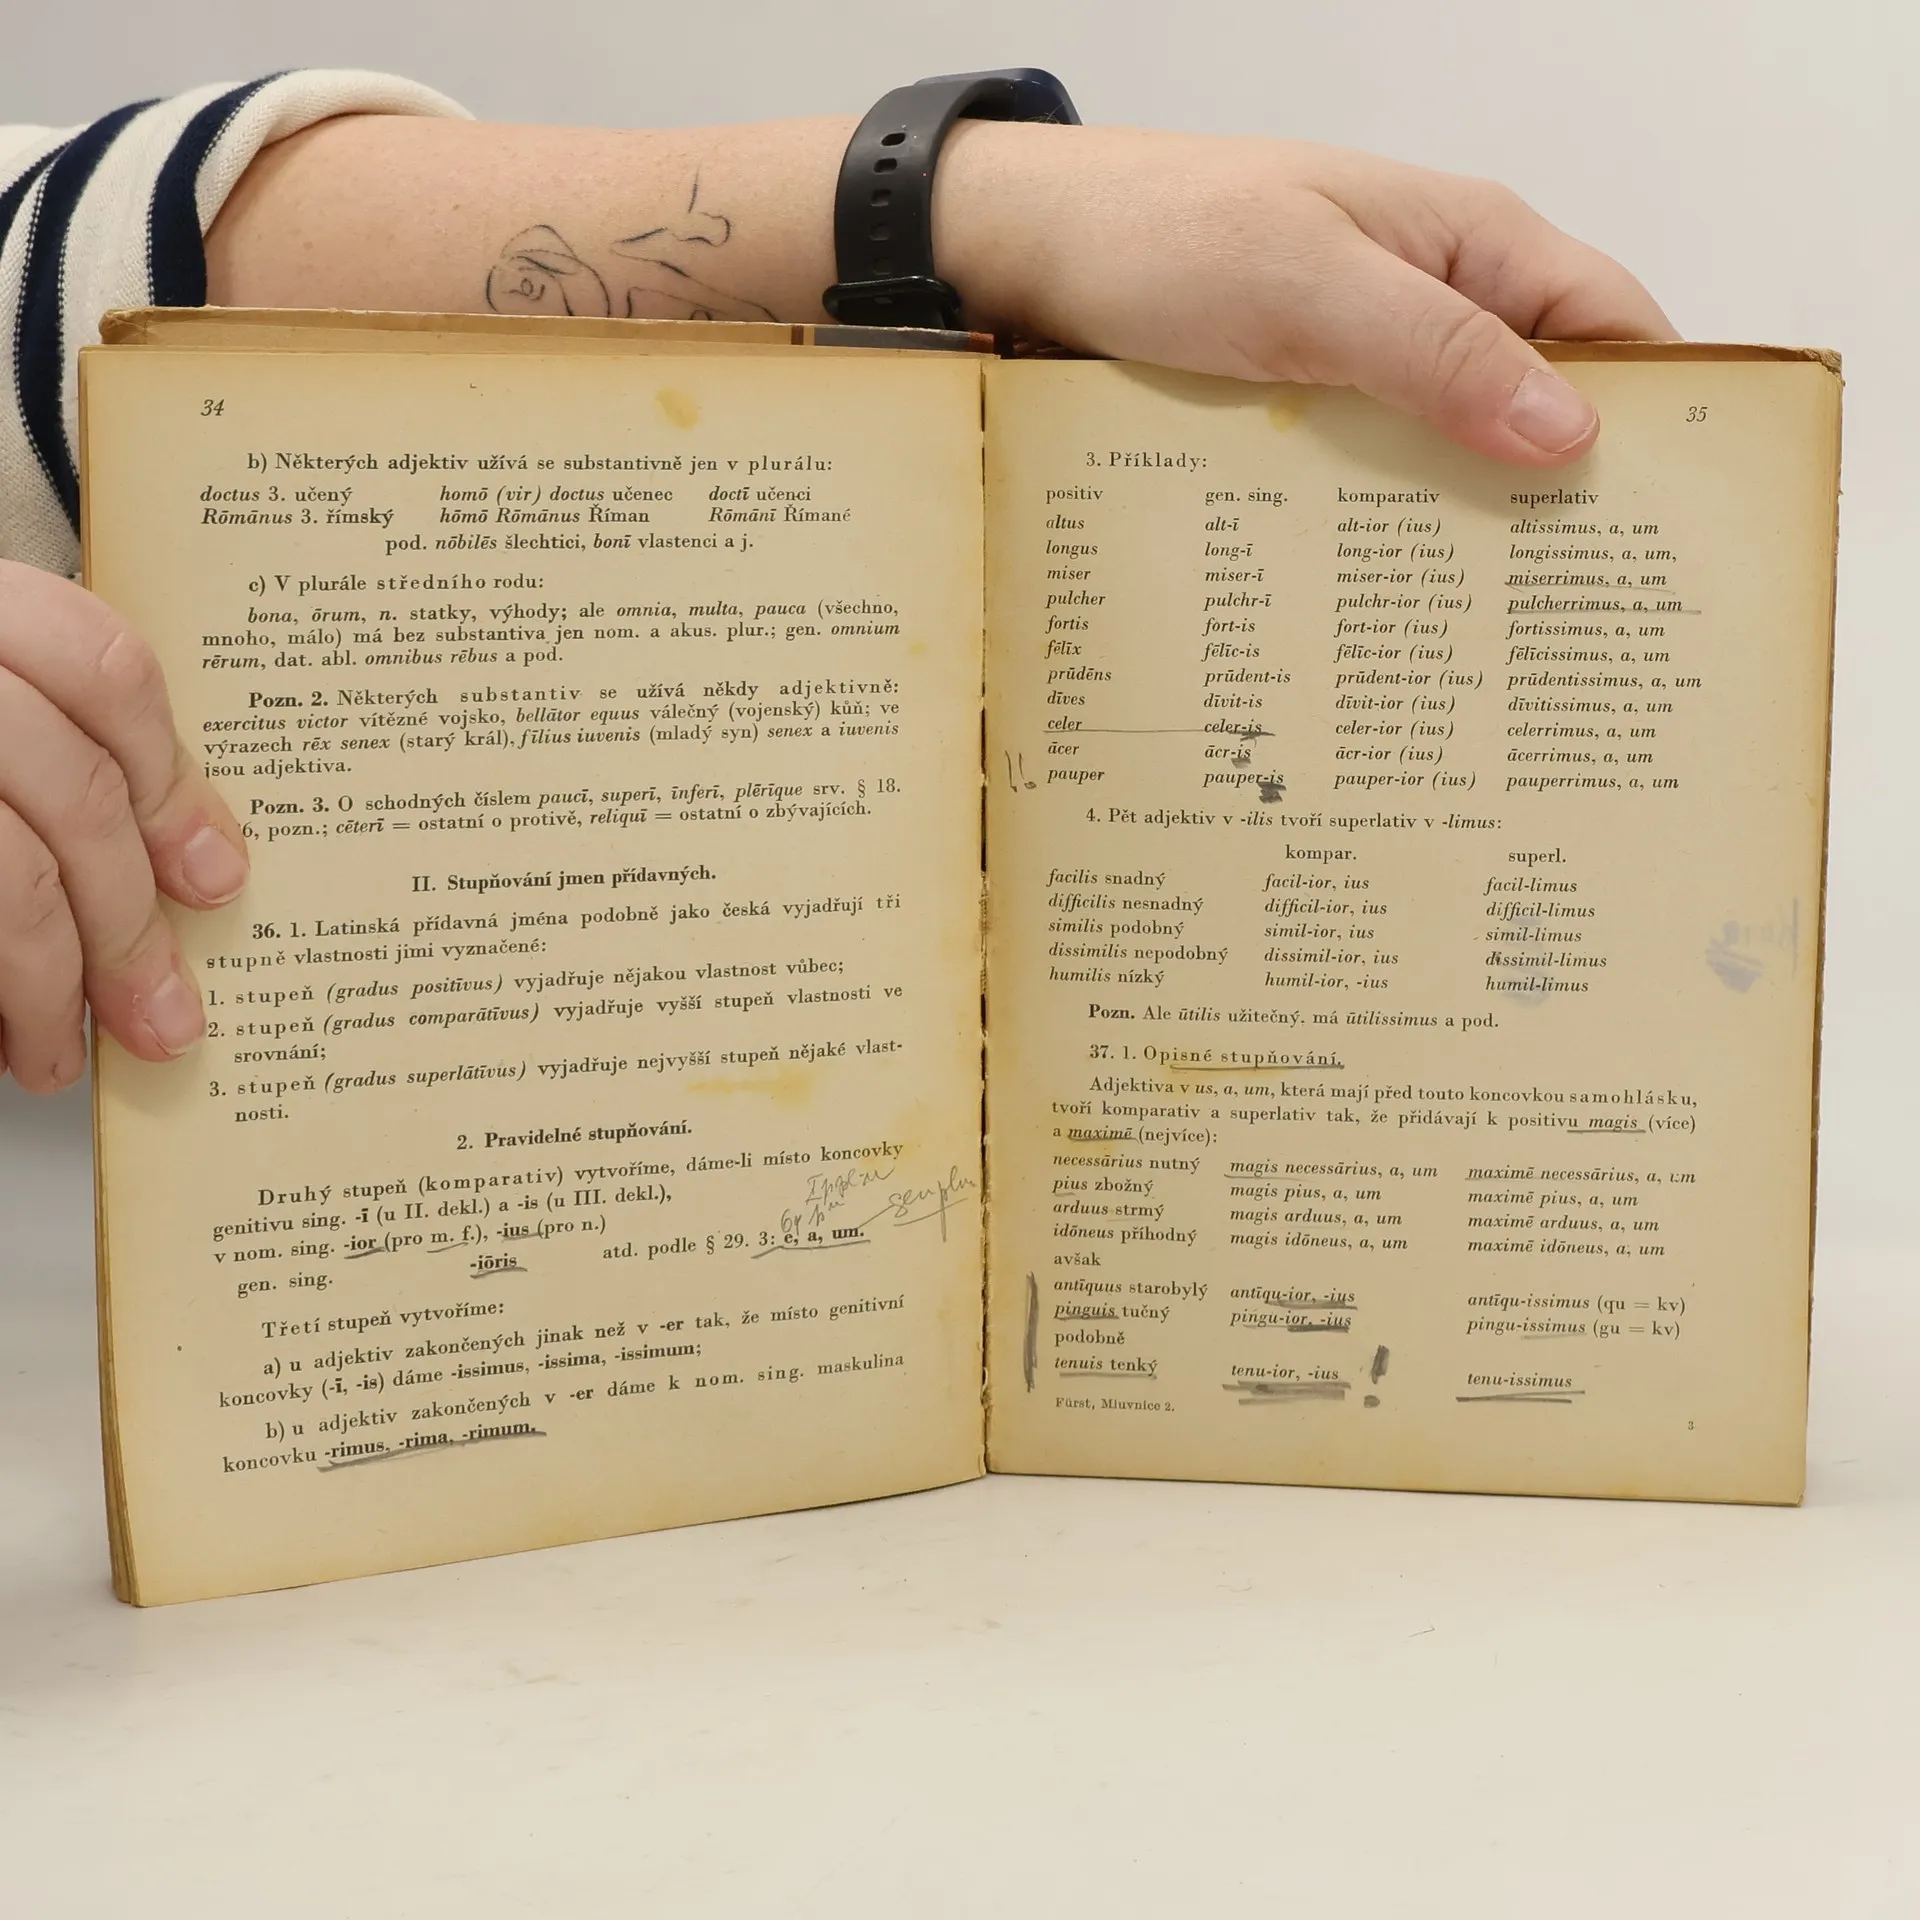 34
b) Některých adjektiv užívá se substantivně jen v plurálu:
doctus 3. učený homō (vir) doctus učenec doctī učenci
Rōmānus 3. římský hōmō Rōmānus Říman Rōmānī Římané
pod. nōbilēs šlechtici, bonī vlastenci a j.
c) V plurále středního rodu:
bona, ōrum, n. statky, výhody; ale omnia, multa, pauca (všechno,
mnoho, málo) má bez substantiva jen nom. a akus. plur.; gen. omnium
rērum, dat. abl. omnibus rēbus a pod.
Pozn. 2. Některých substantiv se užívá někdy adjektivně:
exercitus victor vítězné vojsko, bellātor equus válečný (vojenský) kůň; ve
výrazech rēx senex (starý král), fīlius iuvenis (mladý syn) senex a iuvenis
jsou adjektiva.
Pozn. 3. O schodných číslem paucī, superī, īnferī, plērīque srv. § 18.
6, pozn.; cēterī = ostatní o protivě, reliquī = ostatní o zbývajících.
II. Stupňování jmen přídavných.
36. 1. Latinská přídavná jména podobně jako česká vyjadřují tři
stupně vlastnosti jimi vyznačené:
1. stupeň (gradus positīvus) vyjadřuje nějakou vlastnost vůbec;
2. stupeň (gradus comparātīvus) vyjadřuje vyšší stupeň vlastnosti ve
srovnání;
3. stupeň (gradus superlātīvus) vyjadřuje nejvyšší stupeň nějaké vlast-
nosti.
2. Pravidelné stupňování.
Druhý stupeň (komparativ) vytvoříme, dáme-li místo koncovky
genitivu sing. -ī (u II. dekl.) a -is (u III. dekl.),
v nom. sing. -ior (pro m. f.), -ius (pro n.)
gen. sing. -iōris atd. podle § 29. 3: e, a, um.
gen plu
Třetí stupeň vytvoříme:
a) u adjektiv zakončených jinak než v -er tak, že místo genitivní
koncovky (-ī, -is) dáme -issimus, -issima, -issimum;
b) u adjektiv zakončených v -er dáme k nom. sing. maskulina
koncovku -rimus, -rima, -rimum.
35
3. Příklady:
positiv gen. sing. komparativ superlativ
altus alt-ī alt-ior (ius) altissimus, a, um
longus long-ī long-ior (ius) longissimus, a, um,
miser miser-ī miser-ior (ius) miserrimus, a, um
pulcher pulchr-ī pulchr-ior (ius) pulcherrimus, a, um
fortis fort-is fort-ior (ius) fortissimus, a, um
fēlīx fēlīc-is fēlīc-ior (ius) fēlīcissimus, a, um
prūdēns prūdent-is prūdent-ior (ius) prūdentissimus, a, um
dīves dīvit-is dīvit-ior (ius) dīvitissimus, a, um
celer celer-is celer-ior (ius) celerrimus, a, um
ācer ācr-is ācr-ior (ius) ācerrimus, a, um
!! pauper pauper-is pauper-ior (ius) pauperrimus, a, um
4. Pět adjektiv v -ilis tvoří superlativ v -limus:
kompar. superl.
facilis snadný facil-ior, ius facil-limus
difficilis nesnadný difficil-ior, ius difficil-limus
similis podobný simil-ior, ius simil-limus
dissimilis nepodobný dissimil-ior, ius dissimil-limus
humilis nízký humil-ior, -ius humil-limus
Pozn. Ale ūtilis užitečný. má ūtilissimus a pod.
37. 1. Opisné stupňování.
Adjektiva v us, a, um, která mají před touto koncovkou samohlásku,
tvoří komparativ a superlativ tak, že přidávají k positivu magis (více)
a maximē (nejvíce):
necessārius nutný magis necessārius, a, um maximē necessārius, a, um
pius zbožný magis pius, a, um maximē pius, a, um
arduus strmý magis arduus, a, um maximē arduus, a, um
idōneus příhodný magis idōneus, a, um maximē idōneus, a, um
avšak
antīquus starobylý antīqu-ior, -ius antīqu-issimus (qu = kv)
pinguis tučný pingu-ior, -ius pingu-issimus (gu = kv)
podobně
tenuis tenký tenu-ior, -ius ! tenu-issimus
Fürst, Mluvnice 2.
3